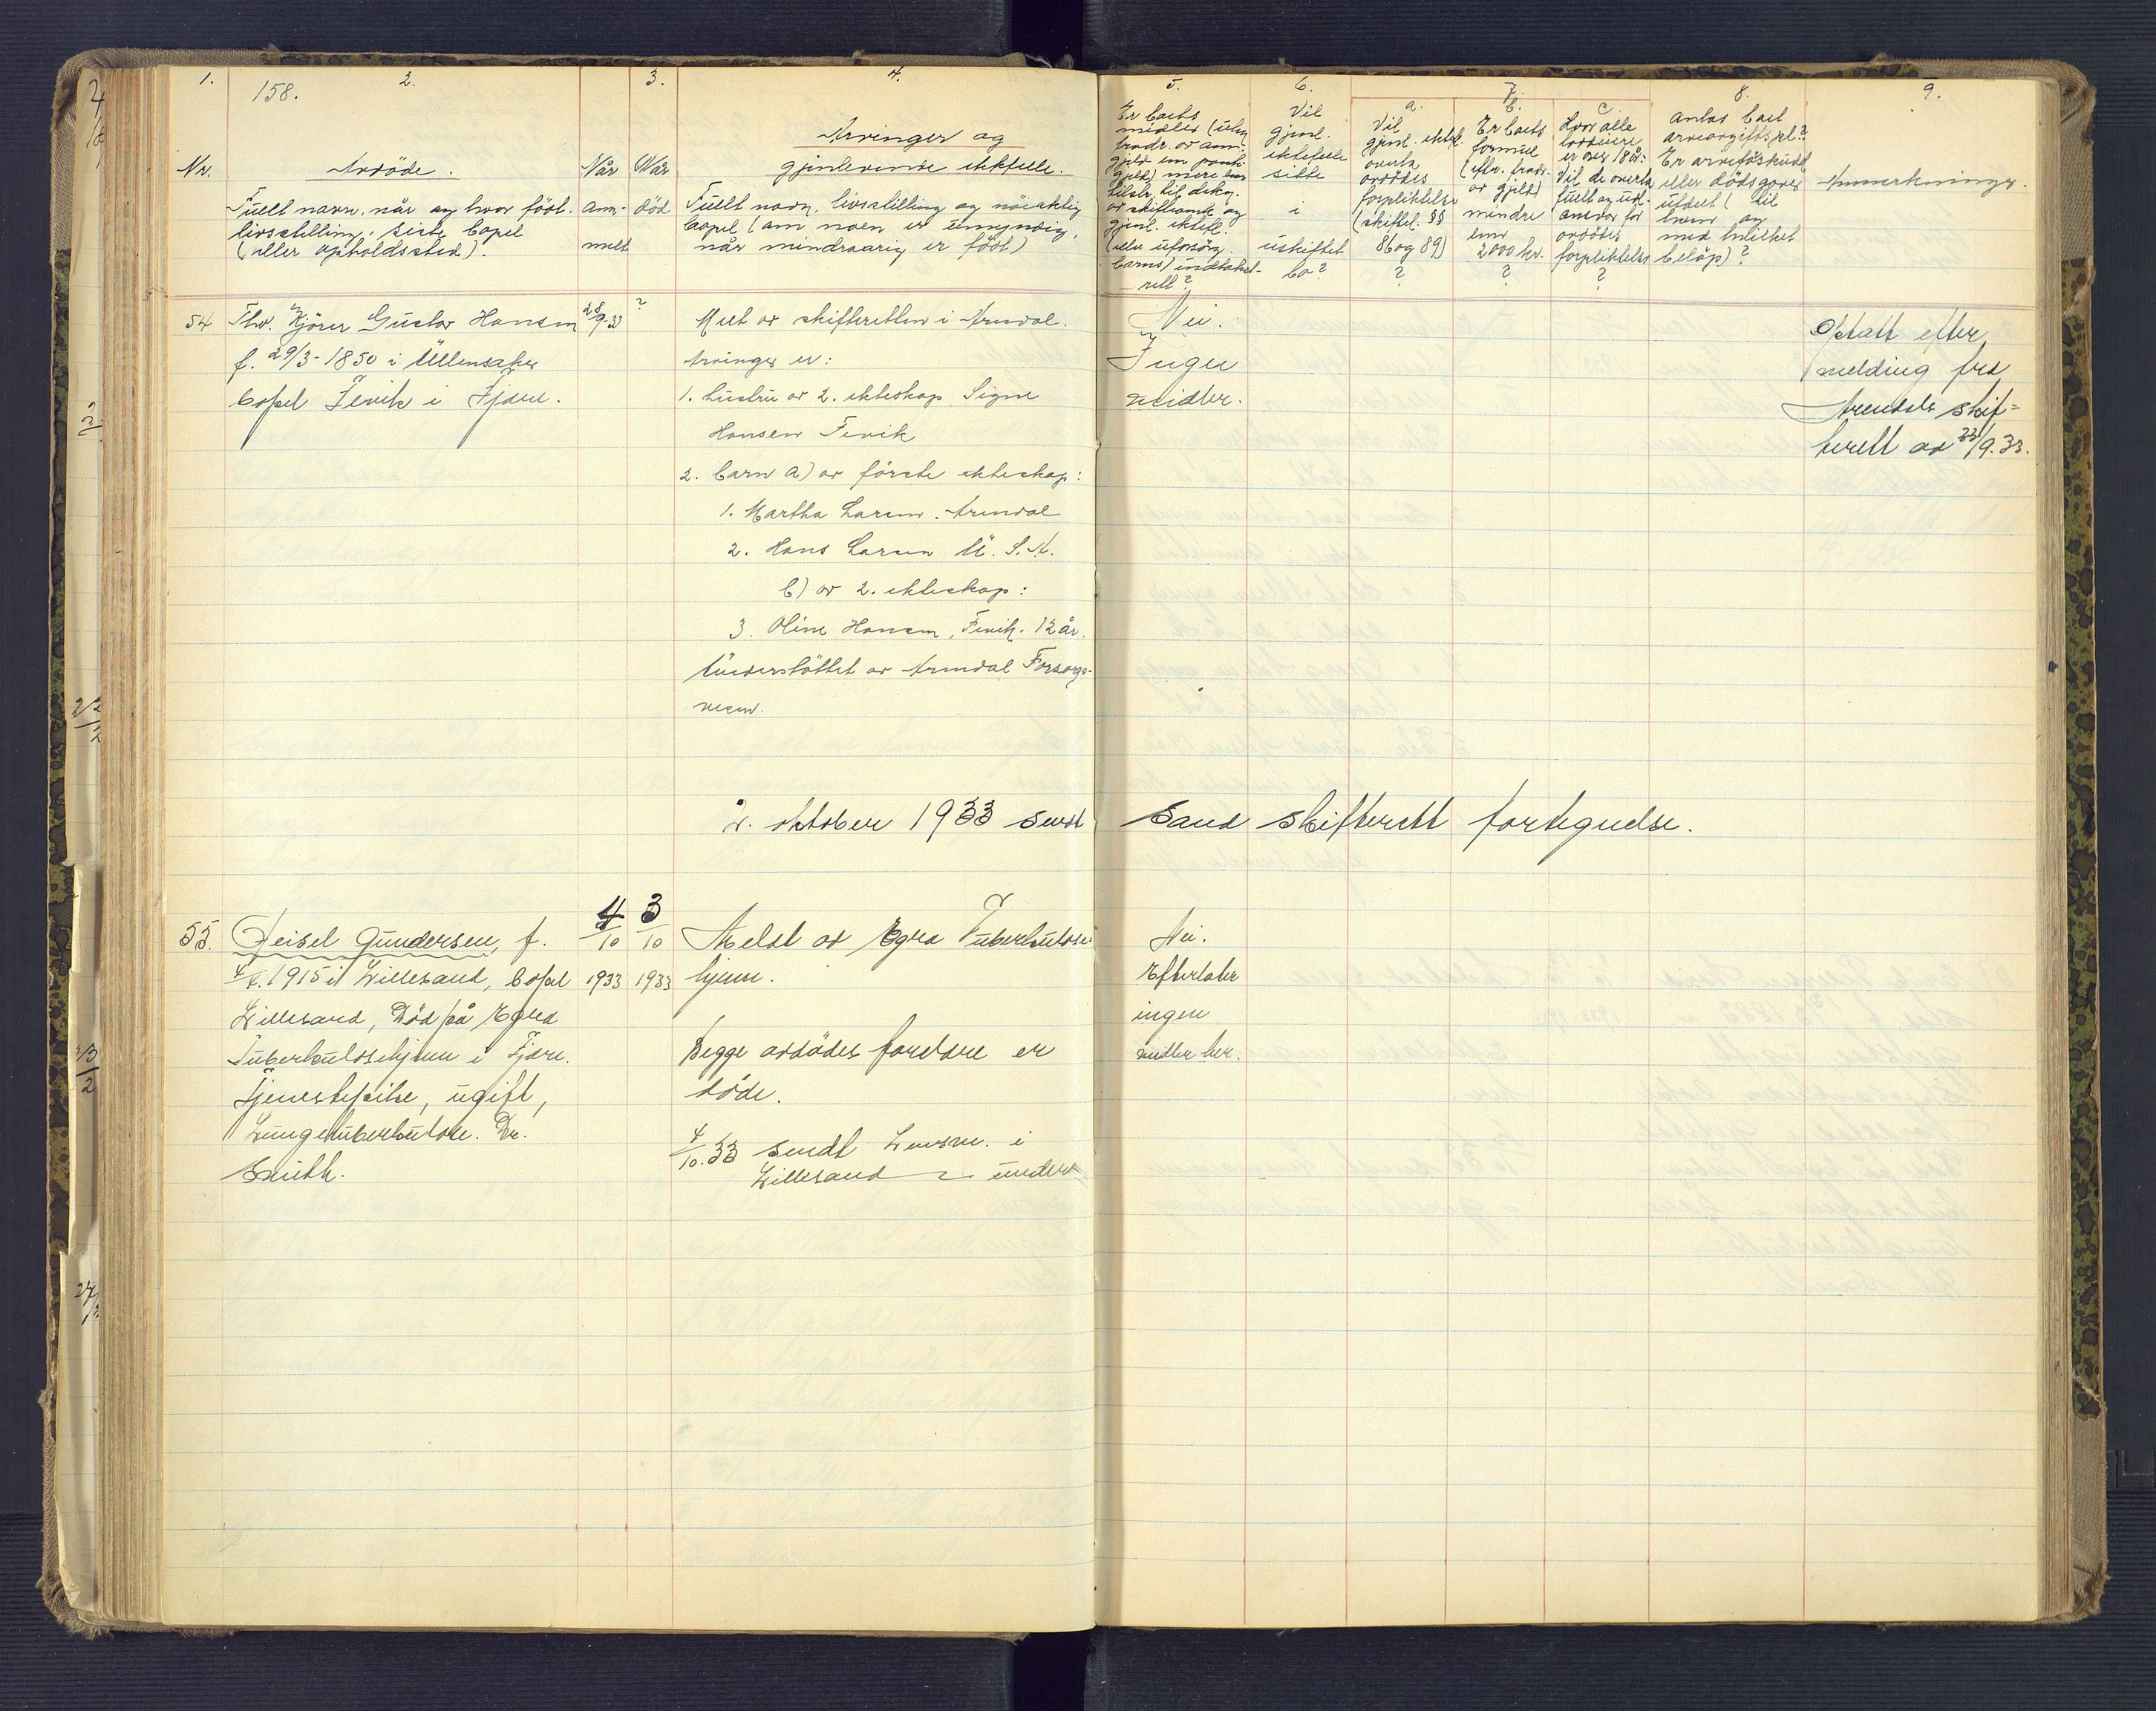 158.
1. 2. 3. 4.
Nr. Avdöde. Når Når Arvinger og
gjenlevende ektefelle.
Fullt navn, når og hvor född.
livsstilling, siste bopel
(eller opholdssted).
an-
melt
död
Fullt navn, livsstilling og nöiaktig
bopel (om noen er umyndig,
når mindreårig er född)
5. 6. 7. 8. 9.
a. b. c
Er boets
midler (uten
fradr. av ann.
gjeld enn pant-
gjeld) mere enn
til dekn.
av skifteomk. og
gjenl. ektefl.
(eller uforsörg.
barns) inntakst-
rett?
Vil
gjenl.
ektefelle
sitte
i
uskiftet
bo?
Vil
gjenl. ektef.
overta
avdödes
forpliktelse
(skiftel. §§
86 og 89)
?
Er boets
formue
(efter fradr.
av gjeld)
mindre
enn
2000 kr.
?
Hvor alle
loddeiere
er over 18 år:
Vil de overta
fullt og udl.
ansvar for
avdödes
forpliktelse
?
Antas boet
arveavgiftspl.?
Er arveforskudd
eller dödsgaver
utdelt (til
hvem og
med hvilket
belöp)?
Anmerkninger.
54 Thv. Kjörer Gustav Hansen 28/9-33 ?
f. 29/3-1850 i Ullensaker
bopel Fevik i Fjære.
Melt av skifteretten i Arendal.
Arvinger er:
1. hustru av 2. ekteskap Signe
Hansen Fevik
2. barn a) av förste ekteskap:
1. Martha Larsen. Arendal
2. Hans Larsen U.S.A.
b) av 2. ekteskap:
3. Oline Hansen, Fevik. 12 år.
Understöttet av Arendal Forsorgs-
vesen.
Nei.
Ingen
midler.
Opsatt efter
melding fra
Arendals skif=
terett av 23/9.33.
2. oktober 1933 sendt Sand skifterett fortegnelse.
55. Geisel Gundersen, f.
4/6.1915 i Lillesand, bopel
Lillesand, Död på Egra
Tuberkulosehjem i Fjære.
Tjenestepike, ugift,
Lungetuberkulose. Dr.
Smith.
4/10 1933
3/10 1933
Meldt av Egra Tuberkulose-
hjem.
Begge avdödes foreldre er
döde.
4/10.33 sendt Lensm. i
Lillesand under
Nei.
Efterlater
ingen
midler her.